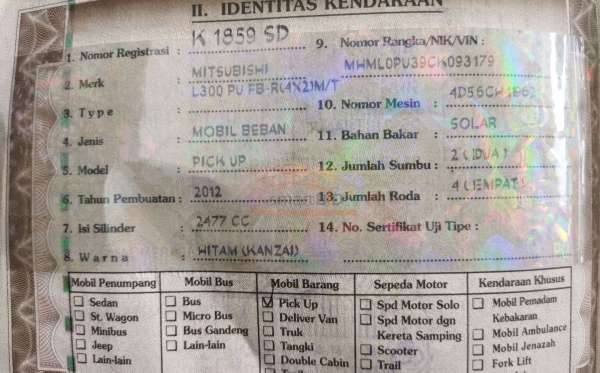 II. IDENTITAS KENDARAAN
1. Nomor Registrasi : K 1859 SD
2. Merk : MITSUBISHI
3. Type : L300 PU FB-R(4X2)M/T
4. Jenis : MOBIL BEBAN
5. Model : PICK UP
6. Tahun Pembuatan : 2012
7. Isi Silinder : 2477 CC
8. Warna : HITAM (KANZAI)
9. Nomor Rangka/NIK/VIN :
MHML0PU39CK093179
10. Nomor Mesin :
11. Bahan Bakar : SOLAR
12. Jumlah Sumbu : 2 (DUA)
13. Jumlah Roda : 4 (EMPAT)
14. No. Sertifikat Uji Tipe :
Mobil Penumpang
Sedan
St. Wagon
Minibus
Jeep
Lain-lain
Mobil Bus
Bus
Micro Bus
Bus Gandeng
Lain-lain
Mobil Barang
Pick Up
Deliver Van
Truk
Tangki
Double Cabin
Sepeda Motor
Spd Motor Solo
Spd Motor dgn
Kereta Samping
Scooter
Trail
Kendaraan Khusus
Mobil Pemadam
Kebakaran
Mobil Ambulance
Mobil Jenazah
Fork Lift